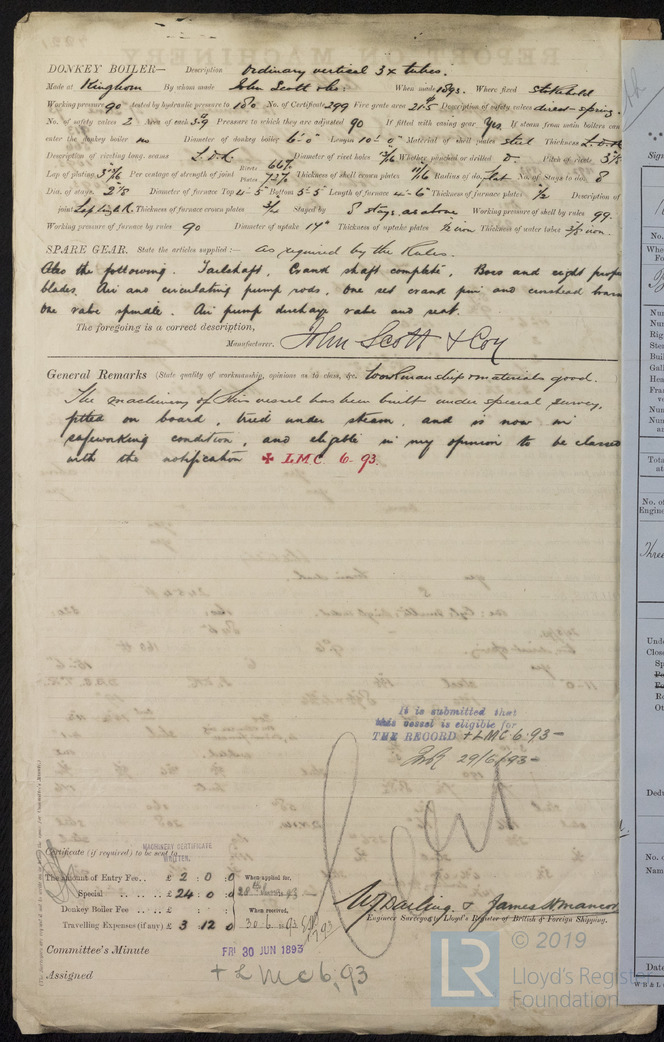 DONKEY BOILER— Description Ordinary vertical 3 x tubes.
Made at Kinghorn By whom made John Scott & Co. When made 1893. Where fixed stokehold
Working pressure 90 tested by hydraulic pressure to 180 No. of Certificate 299 Fire grate area 21.5 Description of safety valves direct spring.
No. of safety valves 2 Area of each 3.9 Pressure to which they are adjusted 90 If fitted with easing gear Yes If steam from main boilers can
enter the donkey boiler no Diameter of donkey boiler 6'-0" Length 10'-0" Material of shell plates steel Thickness
Description of riveting long. seams L.D.R. Diameter of rivet holes 13/16 Whether punched or drilled D- Pitch of rivets
Lap of plating Per centage of strength of joint Rivets 66% Plates 73% Thickness of shell crown plates 11/16 Radius of do. flat No. of Stays to do. 8
Dia. of stays 2 1/8 Diameter of furnace Top 4-5 Bottom 5-5 Length of furnace 4-6 Thickness of furnace plates 1/2 Description of
joint Lap Thickness of furnace crown plates Stayed by 8 stays as above Working pressure of shell by rules 99.
Working pressure of furnace by rules 90 Diameter of uptake 14" Thickness of uptake plates 1/2 iron Thickness of water tubes 3/8 iron.
SPARE GEAR. State the articles supplied:— As required by the Rules.
Also the following. Tailshaft, Crank shaft complete, Boss and eight prop
blades. Air and circulating pump rods, One set crank pin and crosshead
One valve spindle. Air pump discharge valve and seat.
The foregoing is a correct description,
Manufacturer. John Scott & Coy
General Remarks (State quality of workmanship, opinions as to class, &c. Workmanship & materials good.
The machinery of this vessel has been built under special survey,
fitted on board, tried under steam, and is now in
safe working condition, and eligible in my opinion to be classed
with the notification ✠ LMC 6.93.
It is submitted that
this vessel is eligible for
THE RECORD + LMC 6.93 —
29/6/93 —
MACHINERY CERTIFICATE
WRITTEN.
Certificate (if required) to be sent to
The amount of Entry Fee.. £ 2 : 0 : 0 When applied for,
Special .. .. £ 24 : 0 : 0
Donkey Boiler Fee .. .. £ : : When received,
Travelling Expenses (if any) £ 3 : 12 : 0 30.6.93
W J Darling & James
Engineer Surveyors to Lloyd's Register of British & Foreign Shipping.
Committee's Minute FRI 30 JUN 1893
Assigned + LMC 6,93
© 2019
LR
Lloyd's Register
Foundation